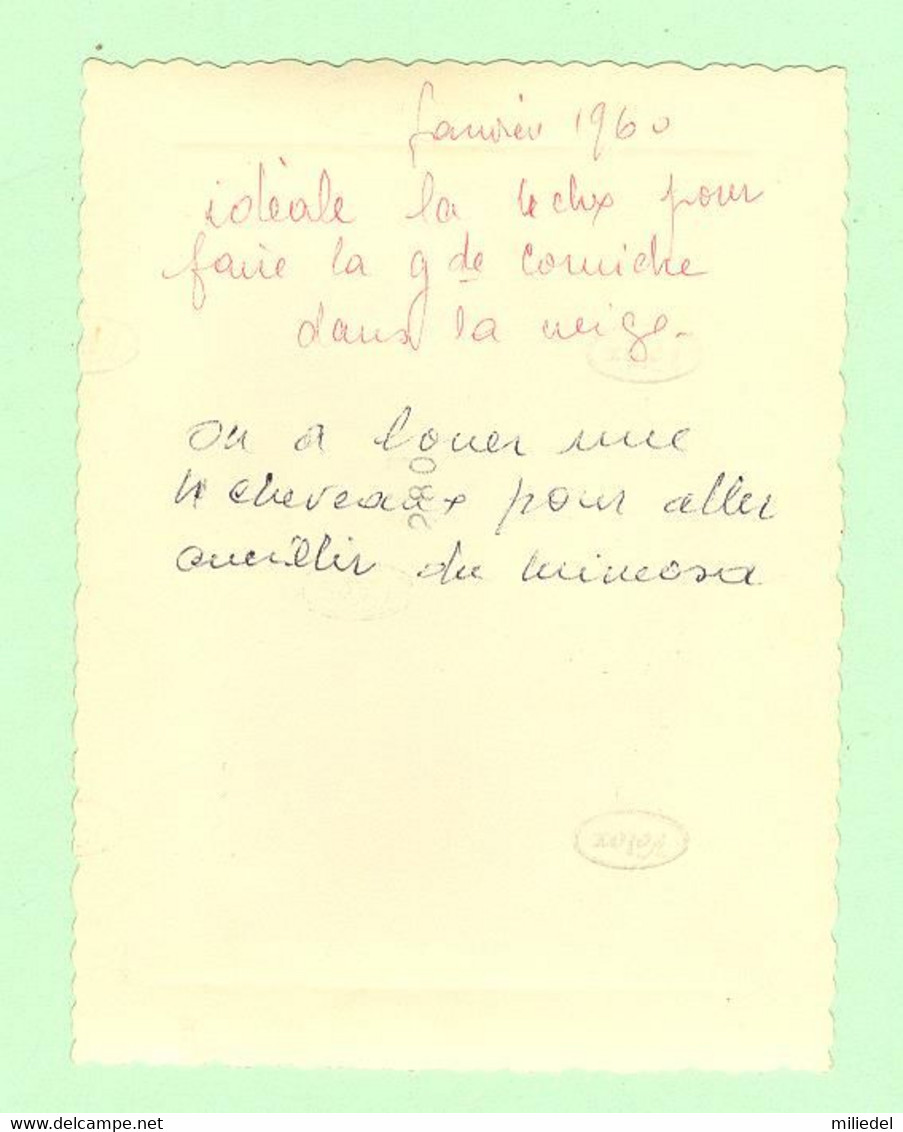 Janvier 1960
idéale la 4 chx pour
faire la g de corniche
dans la neige.
on a louer une
4 cheveaux pour aller
cueillir du mimosa
Velox
miliedel